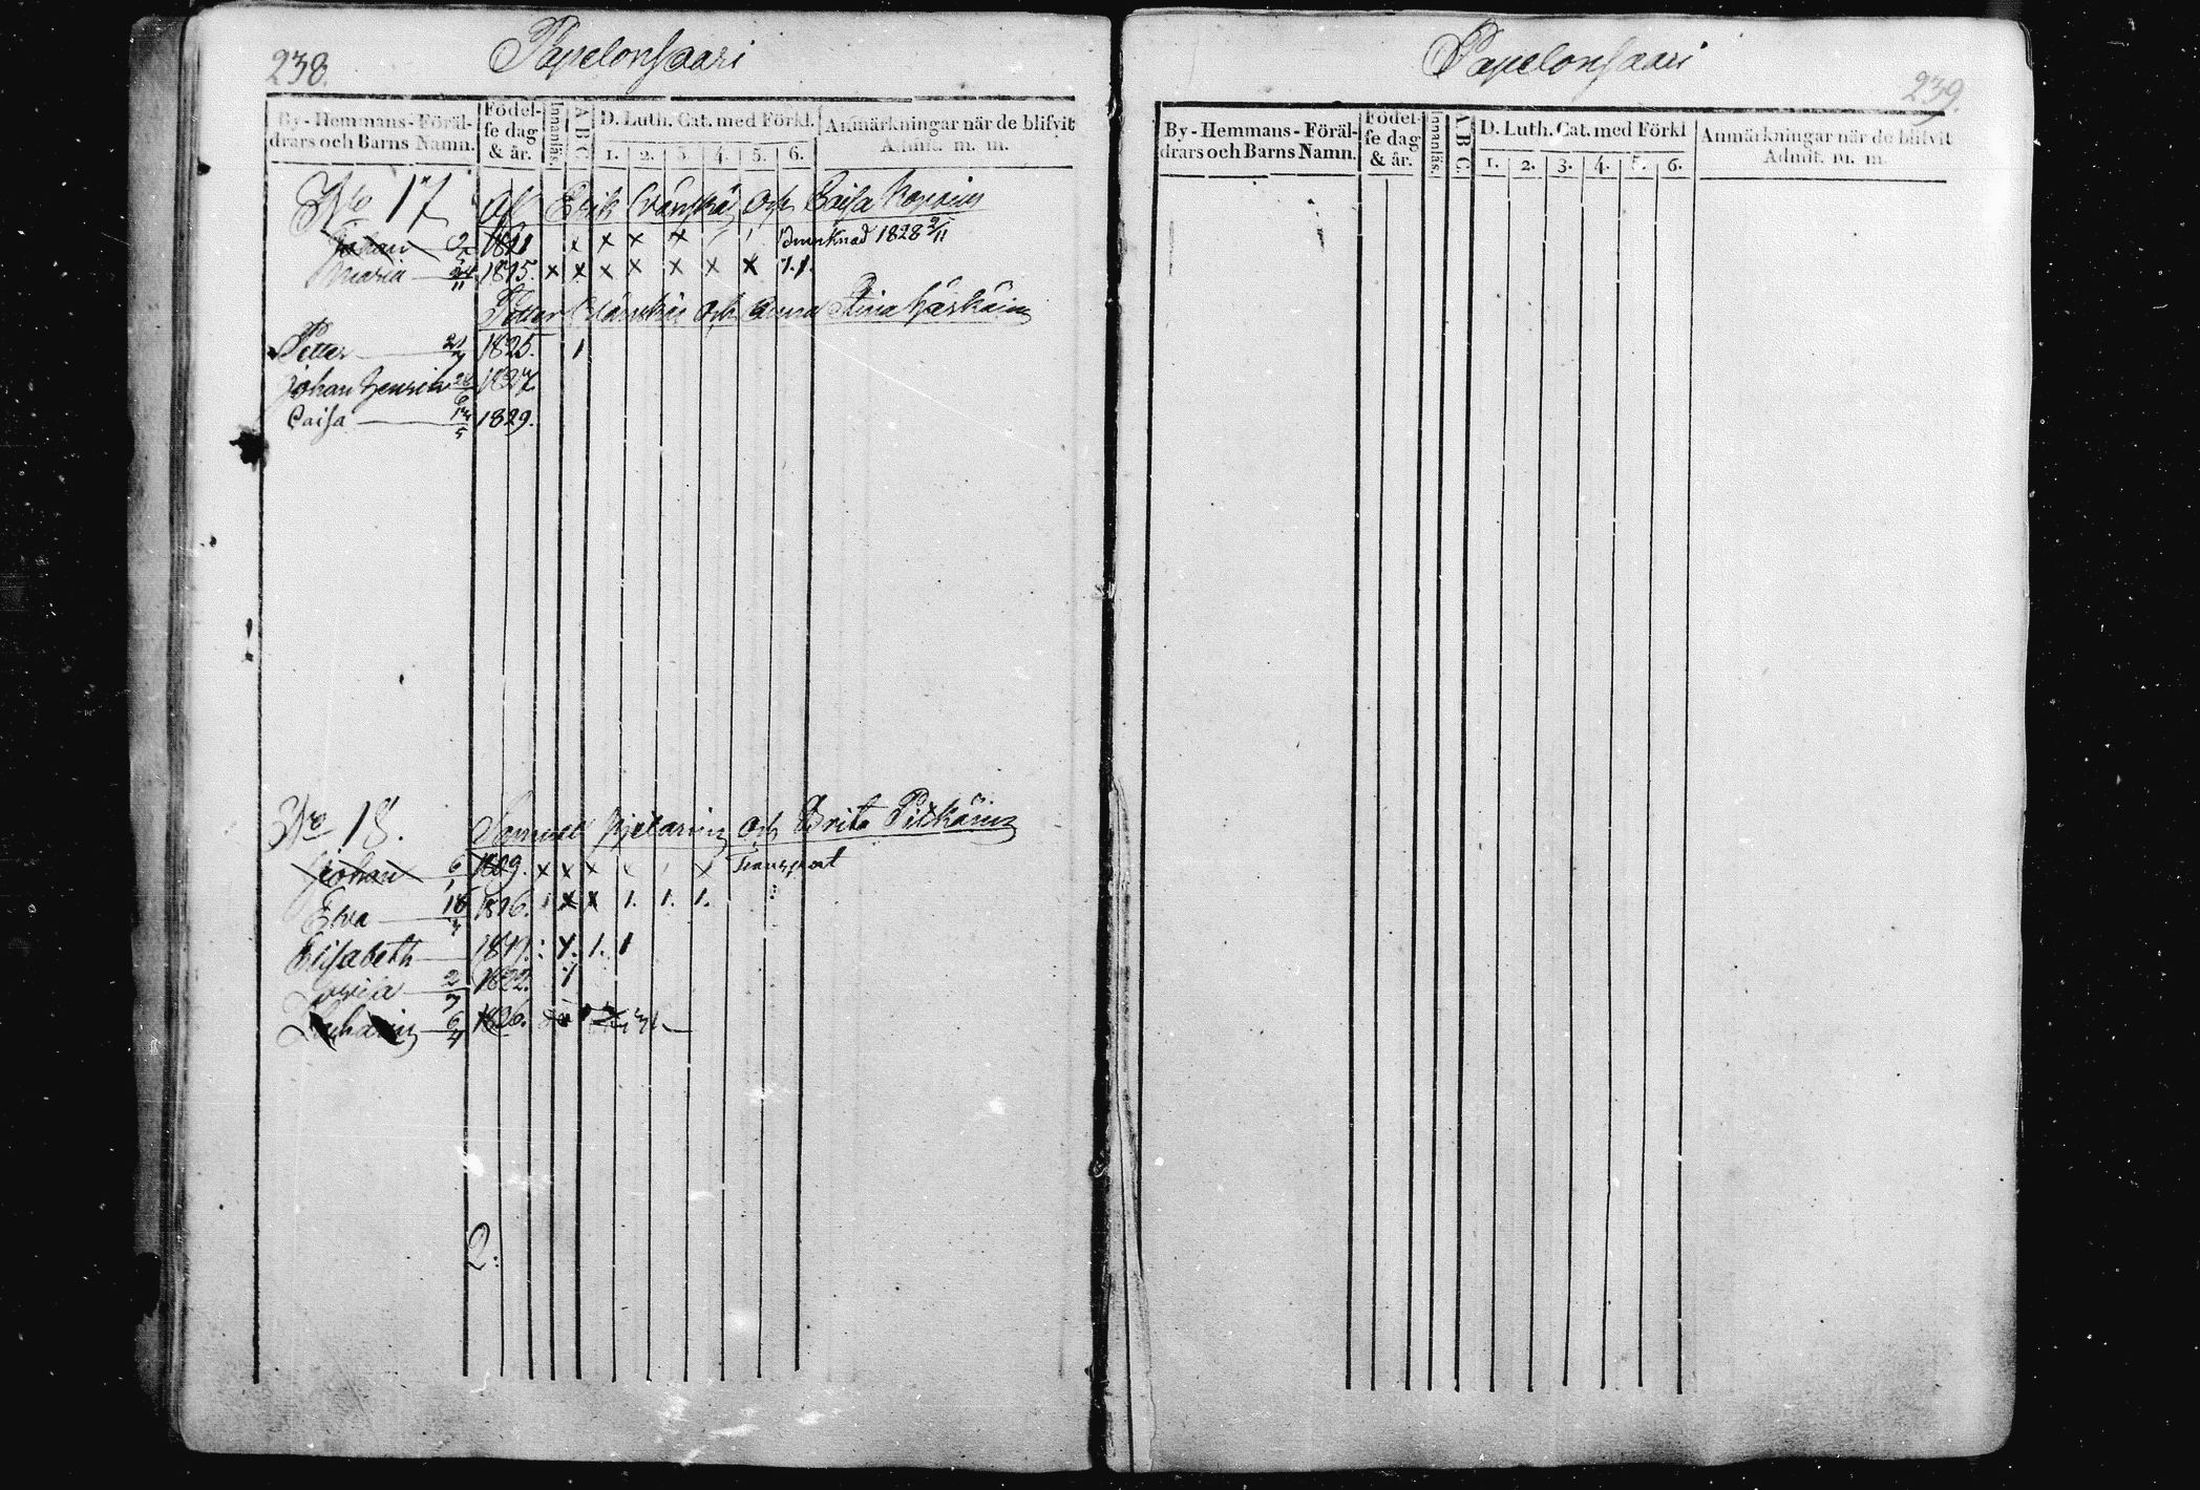 238.
Papelonsaari
By-Hemmans-Föräl-
drars och Barns Namn.
Födel-
se dag
& år.
Innanläs.
A B C.
D. Luth. Cat. med Förkl.
1. 2. 3. 4. 5. 6.
Anmärkningar när de blifvit
Admit. m. m.
No 17 Af Erik och Caisa
Johan 1811 x x x x 1828
Maria 24/11 1815. x x x x x x x 1.1.
Petter och Anna Stina
Petter 1825. 1
Johan Henrik 1827.
Caisa 1829.
No 18. Samuel och Brita Pitkäin
Johan 6/1 1809. x x x Transport
Elva 18 1816. 1 x x 1. 1. 1.
Elisabeth 1819. 1. 1
2 1822. 1
6/4 1826.
2.
Papelonsaari
239.
By-Hemmans-Föräl-
drars och Barns Namn.
Födel-
se dag
& år.
Innanläs.
A B C.
D. Luth. Cat. med Förkl
1. 2. 3. 4. 5. 6.
Anmärkningar när de blifvit
Admit. m. m.